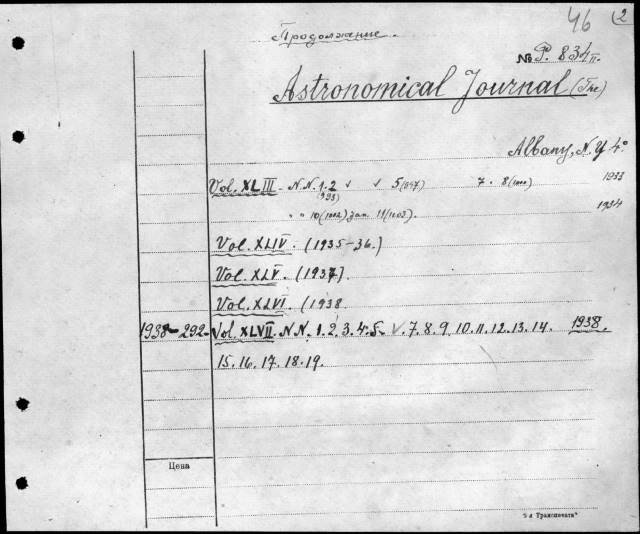 46 2
Продолжание.
№ P. 834 II.
Astronomical Journal (The)
Albany, N.Y 4°
Vol. XLIII - N.N. 1. 2 √ √ 5 (1097) 7. 8 (1000) 1933
(993)
" " 10 (1002) 11 (1003). 1934
Vol. XLIV. (1935-36.)
Vol. XLV. (1937).
Vol. XLVI. (1938
1938-292- Vol. XLVII. N.N. 1. 2. 3. 4. 5. √. 7. 8. 9. 10. 11. 12. 13. 14. 1938.
15. 16. 17. 18. 19.
Цена
"я Транспечати"